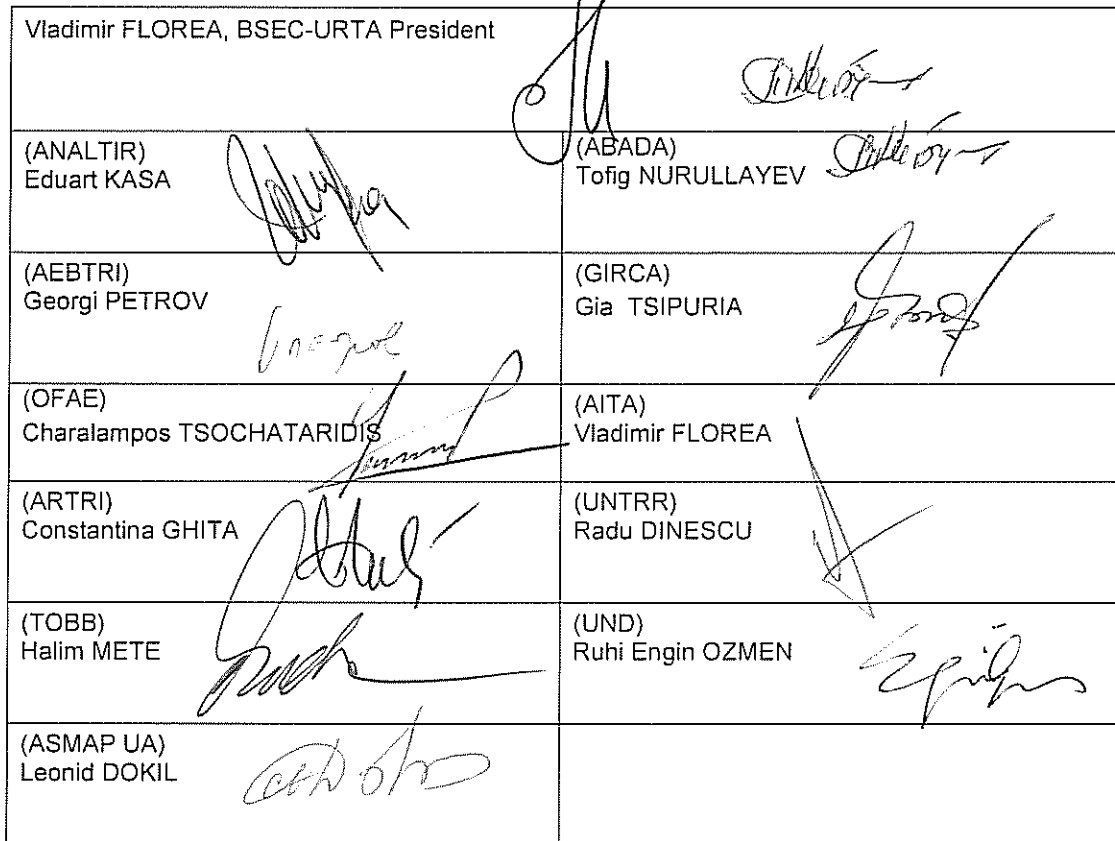 Vladimir FLOREA, BSEC-URTA President
(ANALTIR)
Eduart KASA
(ABADA)
Tofig NURULLAYEV
(AEBTRI)
Georgi PETROV
(GIRCA)
Gia TSIPURIA
(OFAE)
Charalampos TSOCHATARIDIS
(AITA)
Vladimir FLOREA
(ARTRI)
Constantina GHITA
(UNTRR)
Radu DINESCU
(TOBB)
Halim METE
(UND)
Ruhi Engin OZMEN
(ASMAP UA)
Leonid DOKIL